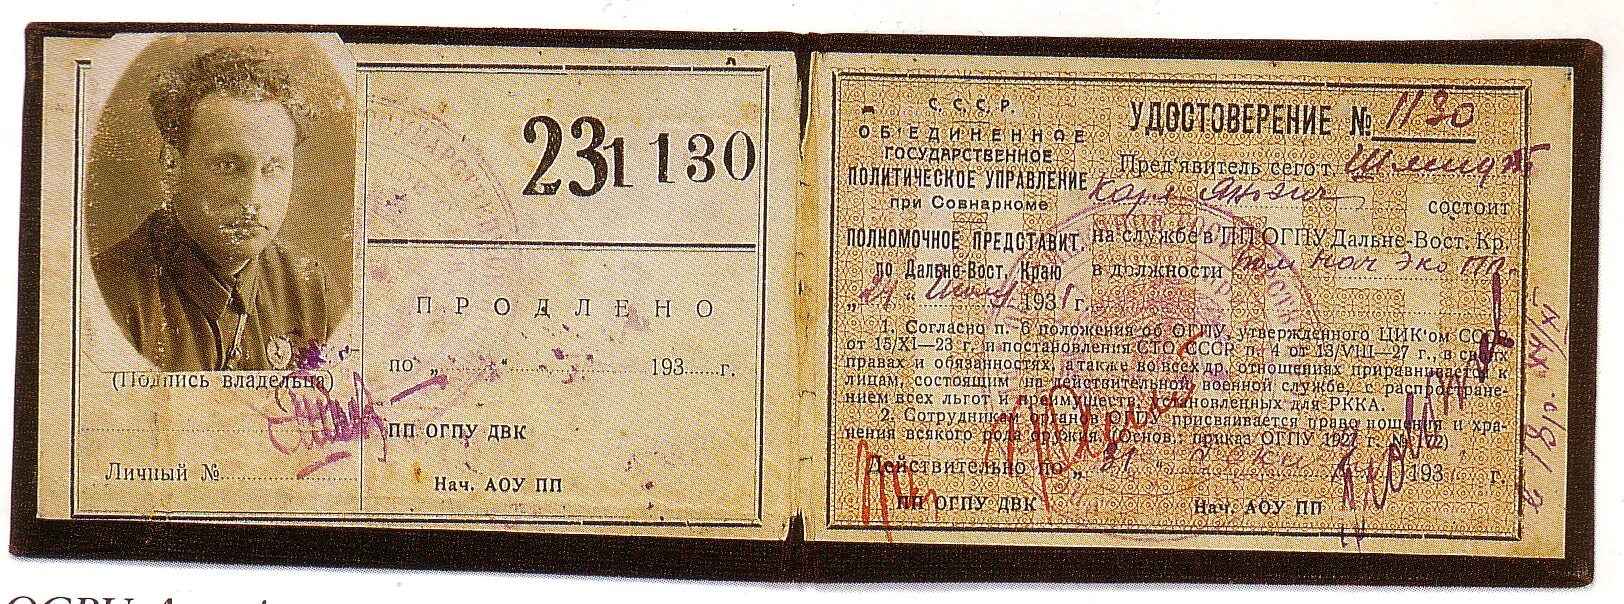 231130
ПРОДЛЕНО
по „ “ 193 г.
(Подпись владельца)
ПП ОГПУ ДВК
Личный №
Нач. АОУ ПП
С. С. С. Р.
ОБ'ЕДИНЕННОЕ
ГОСУДАРСТВЕННОЕ
ПОЛИТИЧЕСКОЕ УПРАВЛЕНИЕ
при Совнаркоме
ПОЛНОМОЧНОЕ ПРЕДСТАВИТ.
по Дальне-Вост. Краю
1931 г.
УДОСТОВЕРЕНИЕ № 1130
Пред'явитель сего т. Шмидт
Карл Янович состоит
на службе в ПП ОГПУ Дальне-Вост. Кр.
в должности пом нач Эко ПП.
1. Согласно п. 6 положения об ОГПУ, утвержденного ЦИК'ом СССР
от 15/XI—23 г. и постановления СТО СССР п. 4 от 13/VIII—27 г., в своих
правах и обязанностях, а также во всех др. отношениях приравнивается к
лицам, состоящим на действительной военной службе, с распростране-
нием всех льгот и преимуществ, установленных для РККА.
2. Сотрудникам органов ОГПУ присваивается право ношения и хра-
нения всякого рода оружия. (Основ.: приказ ОГПУ 1927 г. №
Действительно по „ 31 “ 193 г.
ПП ОГПУ ДВК Нач. АОУ ПП